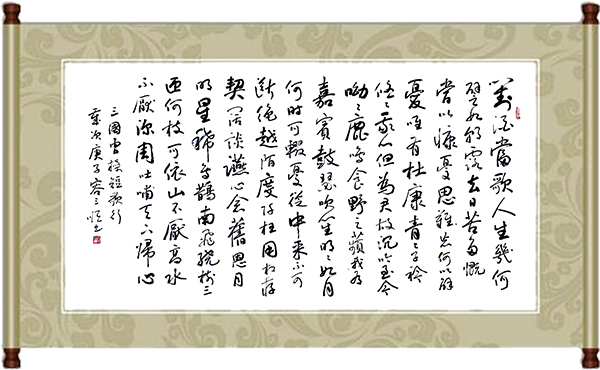 對酒當歌人生幾何
譬如朝露去日苦多慨
當以慷憂思難忘何以解
憂唯有杜康青々子衿
悠々我心但為君故沉吟至今
呦々鹿鳴食野之蘋我有
嘉賓鼓瑟吹笙明々如月
何時可輟憂從中來不可
斷絕越陌度阡枉用相存
契闊談讌心念舊恩月
明星稀烏鵲南飛繞樹三
匝何枝可依山不厭高水
不厭深周吐哺天下歸心
三國曹操短歌行
歲次庚子